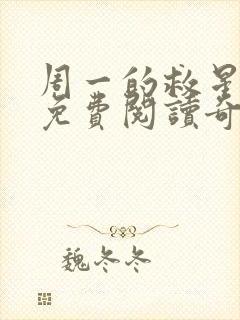 周一的救星
免費閱讀奇
魏冬冬